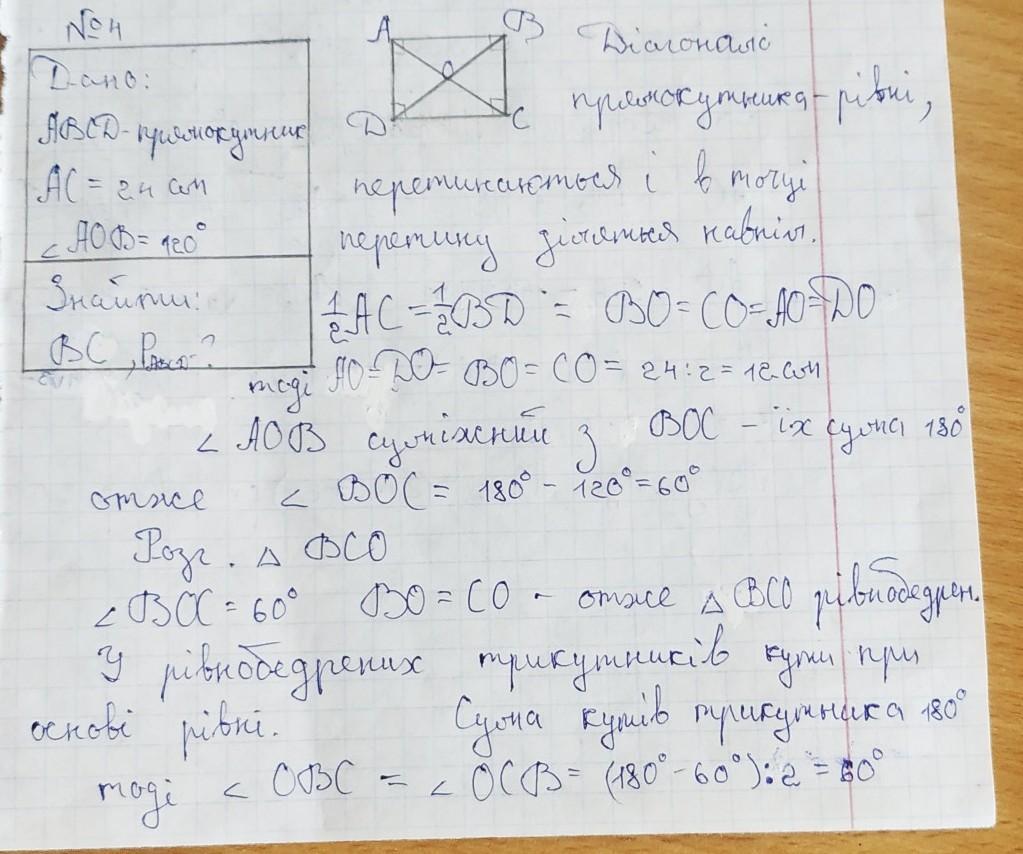 №4
Дано:
ABCD-прямокутник
AC = 24 см
∠AOB = 120°
Знайти:
BC, P_ABCD-?
A B
O
D C
Діагоналі
прямокутника - рівні,
перетинаються і в точці
перетину діляться навпіл.
½AC = ½BD = BO = CO = AO = DO
тоді AO = DO = BO = CO = 24:2 = 12 см
∠ AOB суміжний з BOC - їх сума 180°
отже ∠ BOC = 180° - 120° = 60°
Розг. △ BCO
∠BOC = 60° BO = CO - отже △ BCO рівнобедрен.
У рівнобедрених трикутників кути при
основі рівні. Сума кутів трикутника 180°
тоді ∠ OBC = ∠ OCB = (180° - 60°):2 = 60°